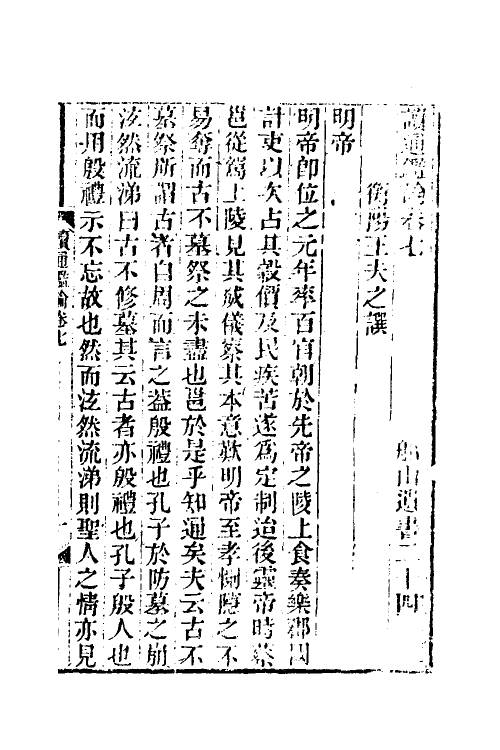 讀通鑑論卷七
船山遺書二十四
衡陽王夫之譔
明帝
明帝卽位之元年率百官朝於先帝之陵上食奏樂郡國
計吏以次占其穀價及民疾苦遂爲定制迨後靈帝時蔡
邕從駕上陵見其威儀察其本意歎明帝至孝惻隱之不
易奪而古不墓祭之未盡也邕於是乎知通矣夫云古不
墓祭所謂古者自周而言之蓋殷禮也孔子於防墓之崩
泫然流涕曰古不修墓其云古者亦殷禮也孔子殷人也
而用殷禮示不忘故也然而泫然流涕則聖人之情亦見
讀通鑑論卷七
一